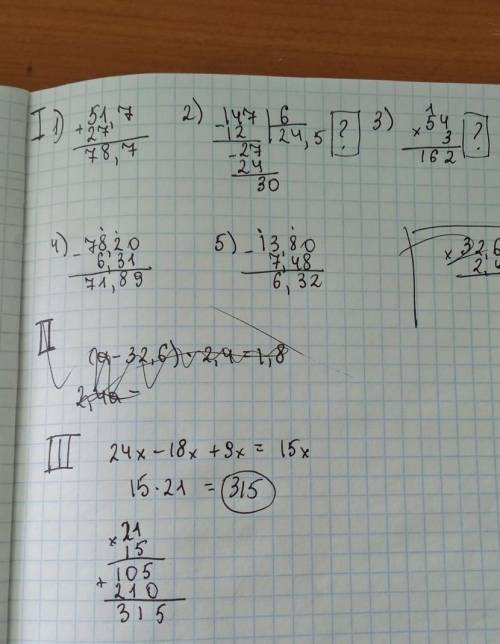 I 1) 51,7 2) 147 | 6 3) 54
+ 27, - 12 24,5 ? × 3 ?
78,7 - 27 162
24
30
4) 78,20 5) 13,80 × 32,6
- 6,31 - 7,48 2,4
71,89 6,32
II
(a - 32,6) · 2,4 = 1,8
2,4a =
III 24x - 18x + 9x = 15x
15 · 21 = 315
× 21
15
+ 105
210
315